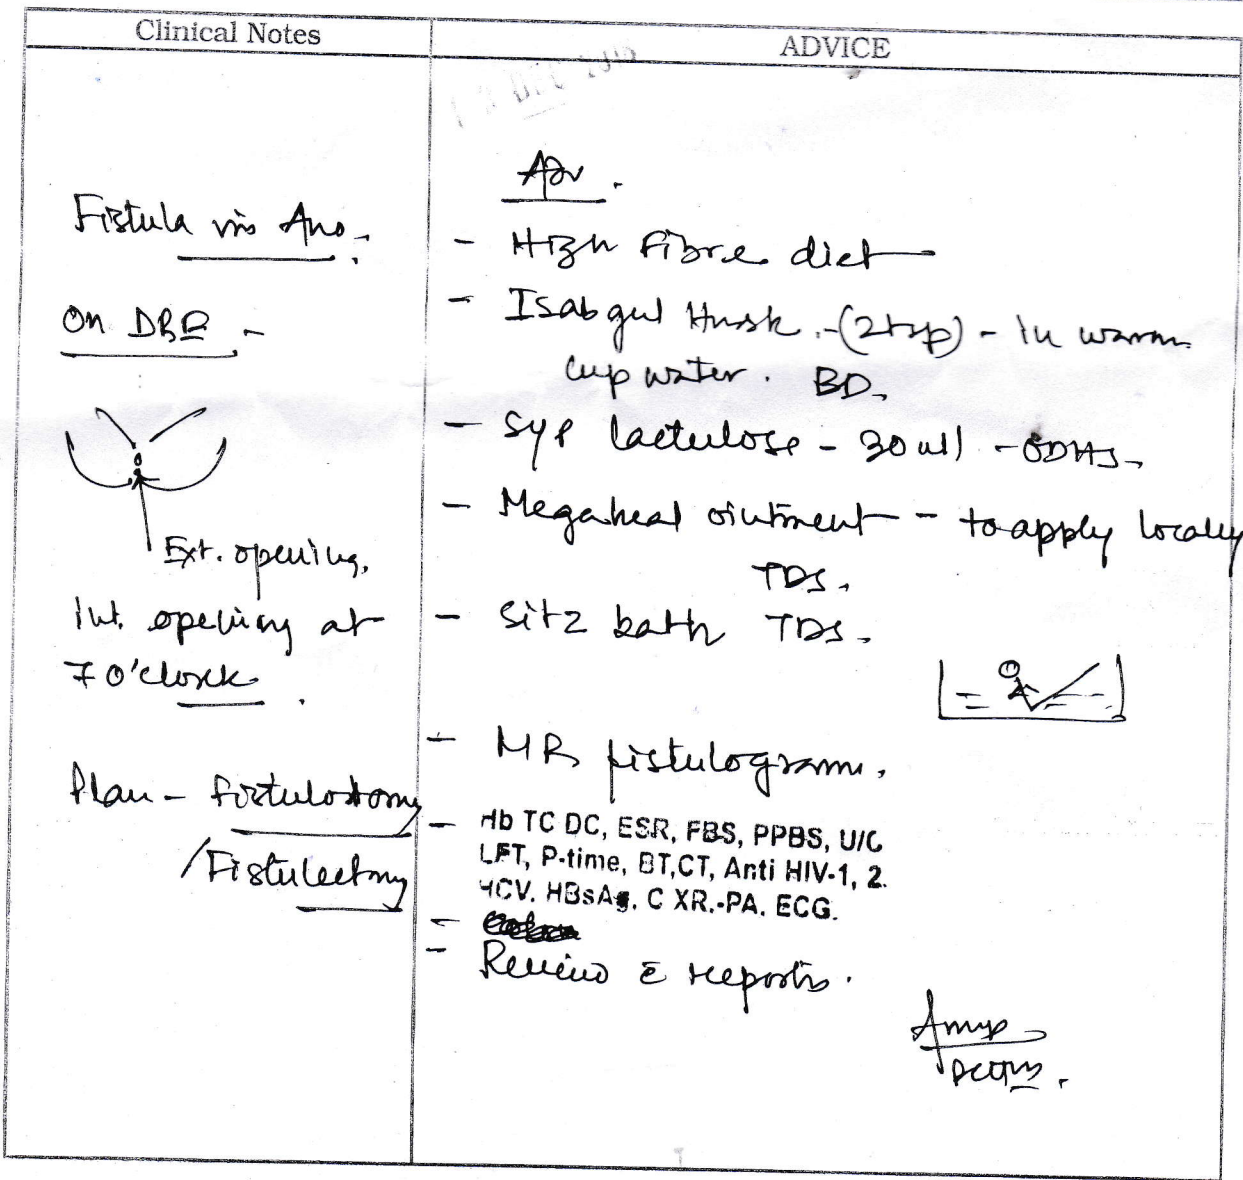 Clinical Notes
ADVICE
DEC
Fistula in Ano.
On DRE -
Ext. opening.
Int. opening at
7 O'clock.
Plan - Fistulotomy
/Fistulectomy
Adv.
- High Fibre diet
- Isabgul Husk - (2tsp) - in warm
cup water. BD.
- Syp lactulose - 30 ml - ODHS -
- Megaheal ointment - to apply locally
TDS.
- Sitz bath TDS.
- MR fistulogram.
- Hb TC DC, ESR, FBS, PPBS, U/C
LFT, P-time, BT,CT, Anti HIV-1, 2.
HCV. HBsAg, C XR.-PA. ECG.
- Review c̄ reports.